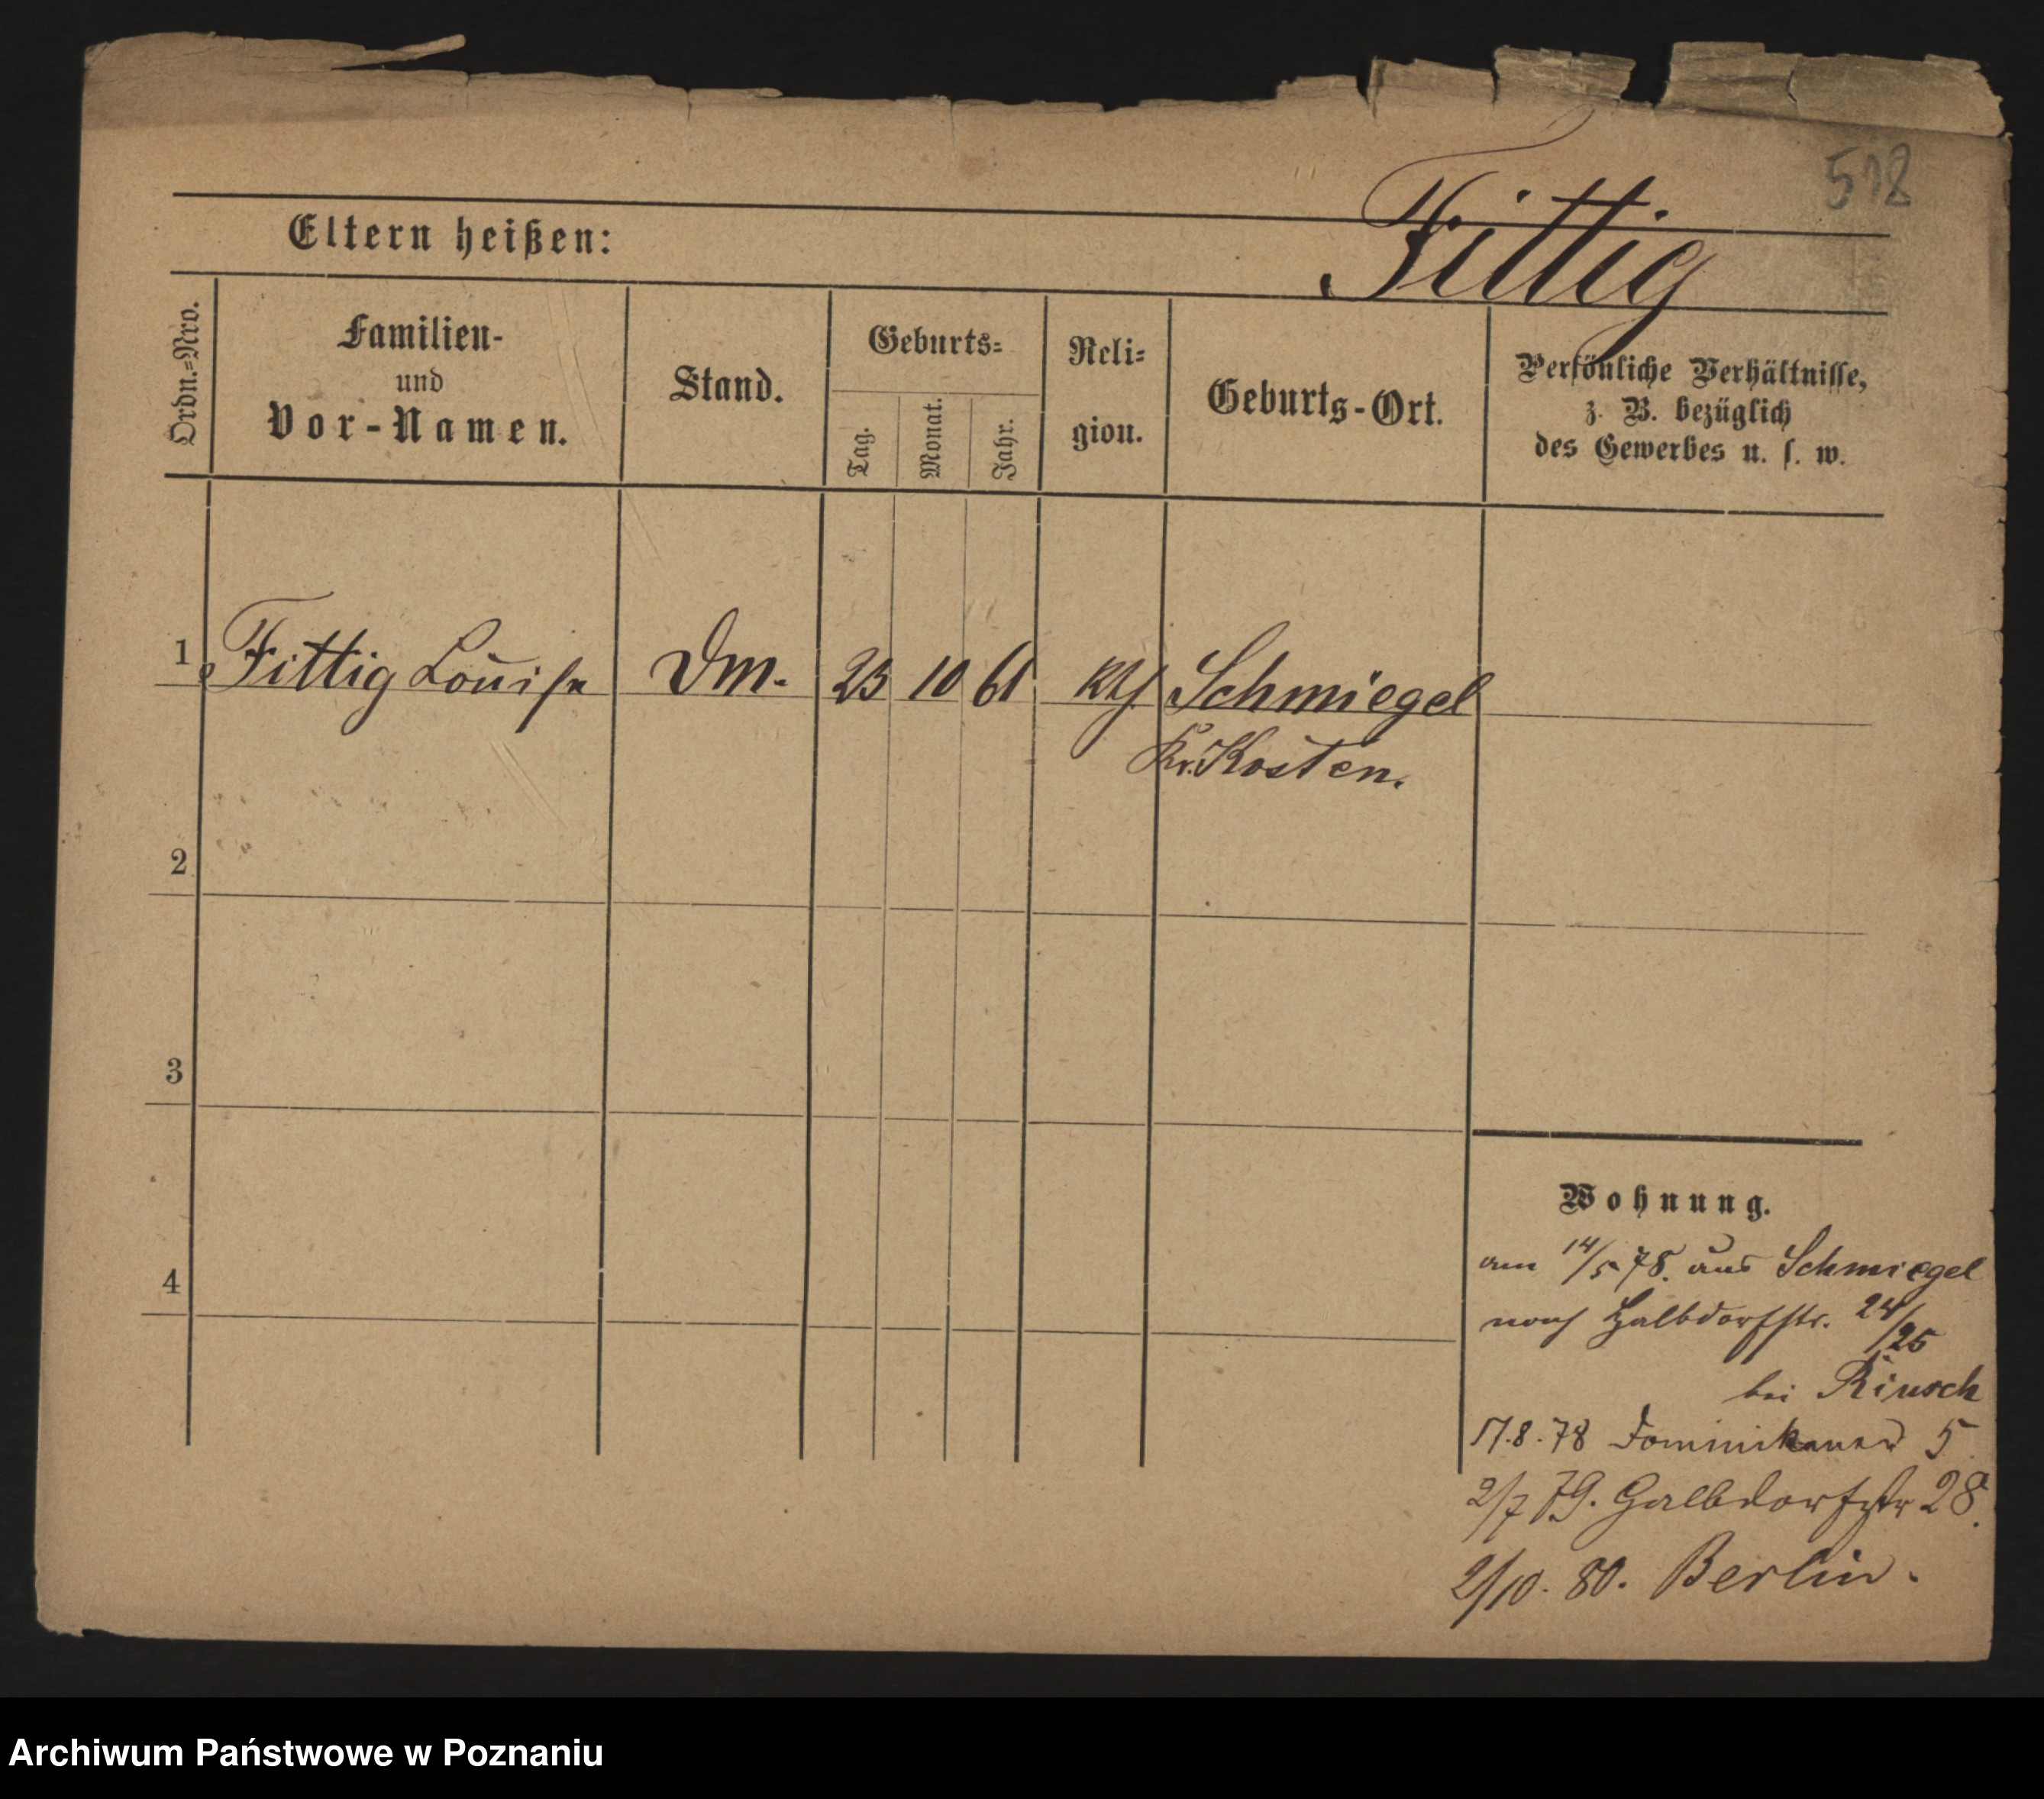 518
Fittig
Eltern heißen:
Ordn.=Nro.
Familien-
und
Vor-Namen.
Stand.
Geburts=
Tag.
Monat.
Jahr.
Reli=
gion.
Geburts-Ort.
Persönliche Verhältnisse,
z. B. bezüglich
des Gewerbes u. s. w.
1 Fittig Louise Dm. 25 10 61 kth Schmiegel
Kr. Kosten.
2
3
4
Wohnung.
am 14/5 78. aus Schmiegel
nach Halbdorfstr. 24/25
bei
17.8.78 Dominikaner 5
2/7 79. Halbdorfstr 28.
2/10. 80. Berlin.
Archiwum Państwowe w Poznaniu